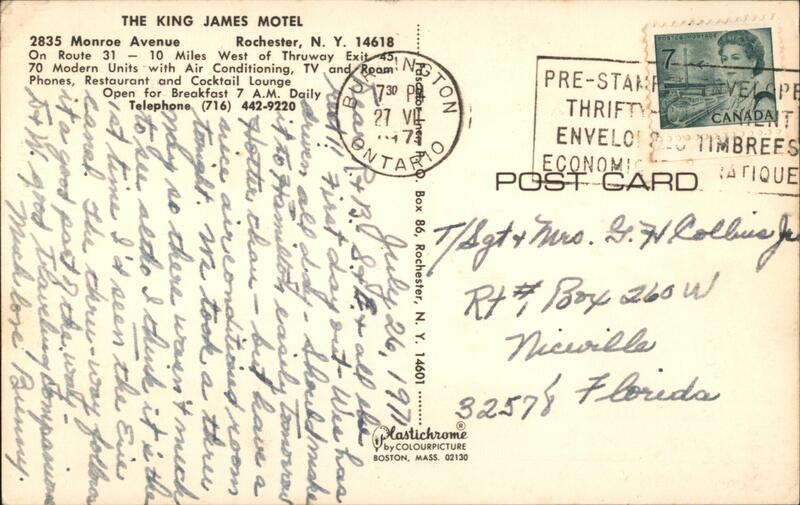 THE KING JAMES MOTEL
2835 Monroe Avenue Rochester, N. Y. 14618
On Route 31 — 10 Miles West of Thruway Exit 45
70 Modern Units with Air Conditioning, TV and Room
Phones, Restaurant and Cocktail Lounge
Open for Breakfast 7 A.M. Daily
Telephone (716) 442-9220
July 26, 197
Dear R & B, S, & & all the
First day out – We has
driven all day – Should make
it to Hamilton easily tomorrow
Hotter than – but have a
nice airconditioned room
tonight. We took a thru
way so there wasn't much
to see altho I think it is the
1st time I'd seen the Erie
canal. The thru-way follows
it a good part of the way.
H & W. good traveling companions
Much love Bunny.
Box 86, Rochester, N. Y. 14601
Plastichrome®
by COLOURPICTURE
BOSTON, MASS. 02130
BURLINGTON
ONTARIO
7 30 PM
27 VII
PRE-STAMPED ENVELOPE
THRIFTY
ENVELO TIMBREES
ECONOMI ATIQUE
POSTES POSTAGE
7
CANADA
POST CARD
T/Sgt & Mrs. G. H Collins Jr
Rt #1, Box 260 W
Niceville
Florida
32578